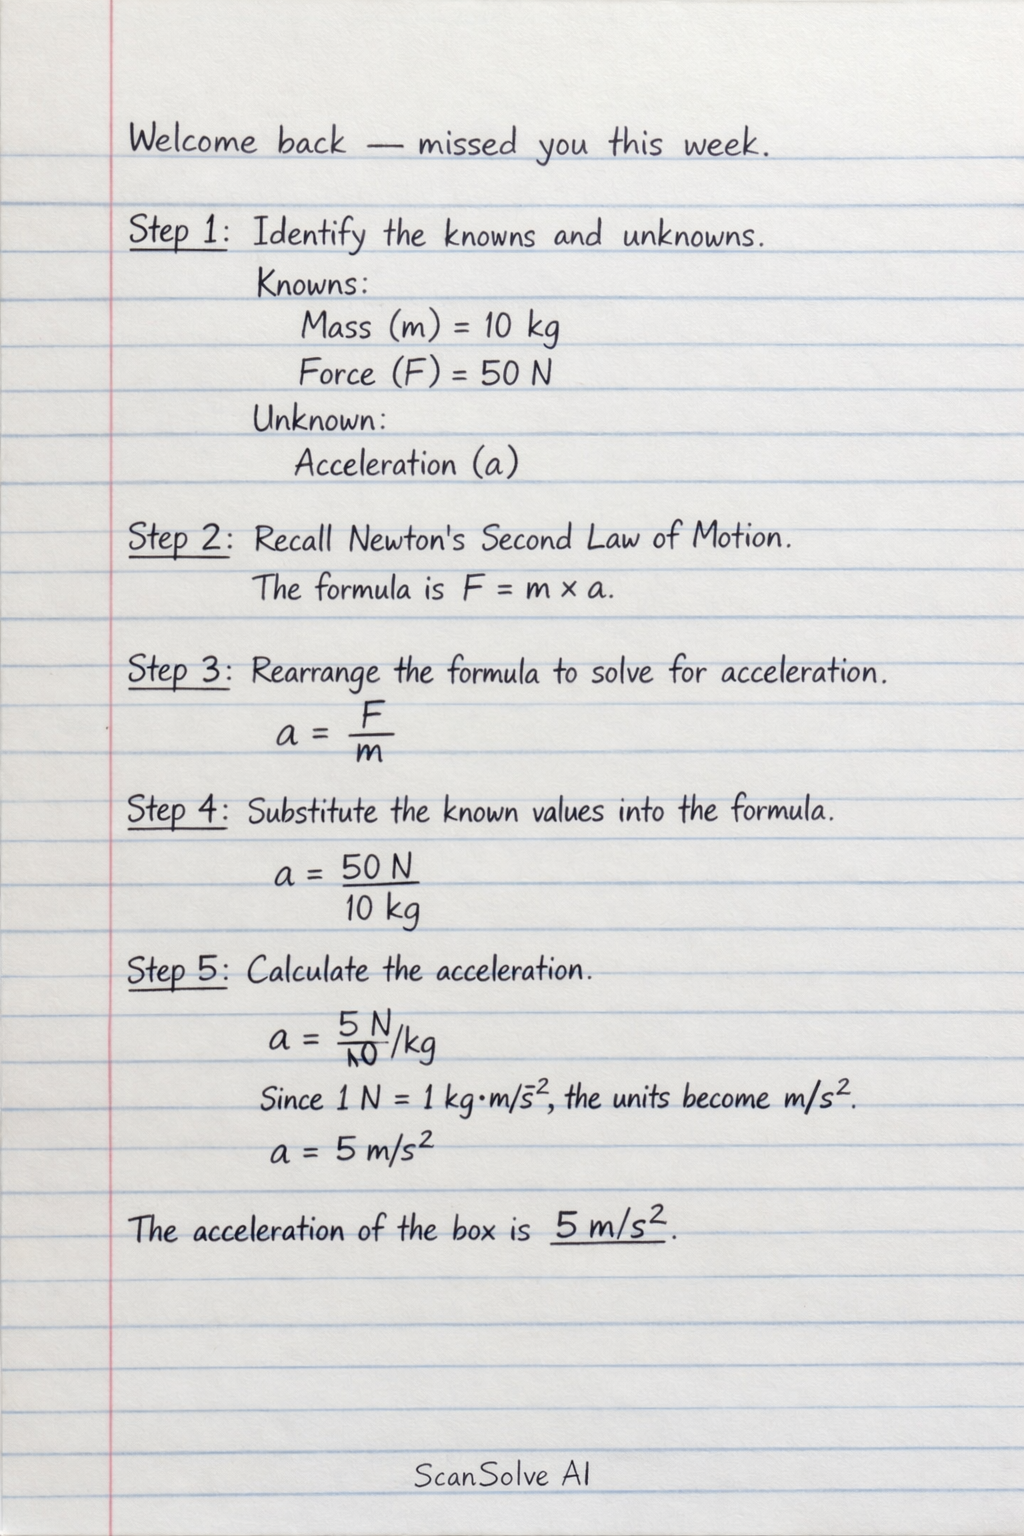 Welcome back — missed you this week.
Step 1: Identify the knowns and unknowns.
Knowns:
Mass (m) = 10 kg
Force (F) = 50 N
Unknown:
Acceleration (a)
Step 2: Recall Newton's Second Law of Motion.
The formula is F = m × a.
Step 3: Rearrange the formula to solve for acceleration.
a = F/m
Step 4: Substitute the known values into the formula.
a = 50 N/10 kg
Step 5: Calculate the acceleration.
a = 5 N/10/kg
Since 1 N = 1 kg·m/s̄², the units become m/s².
a = 5 m/s²
The acceleration of the box is 5 m/s².
ScanSolve AI